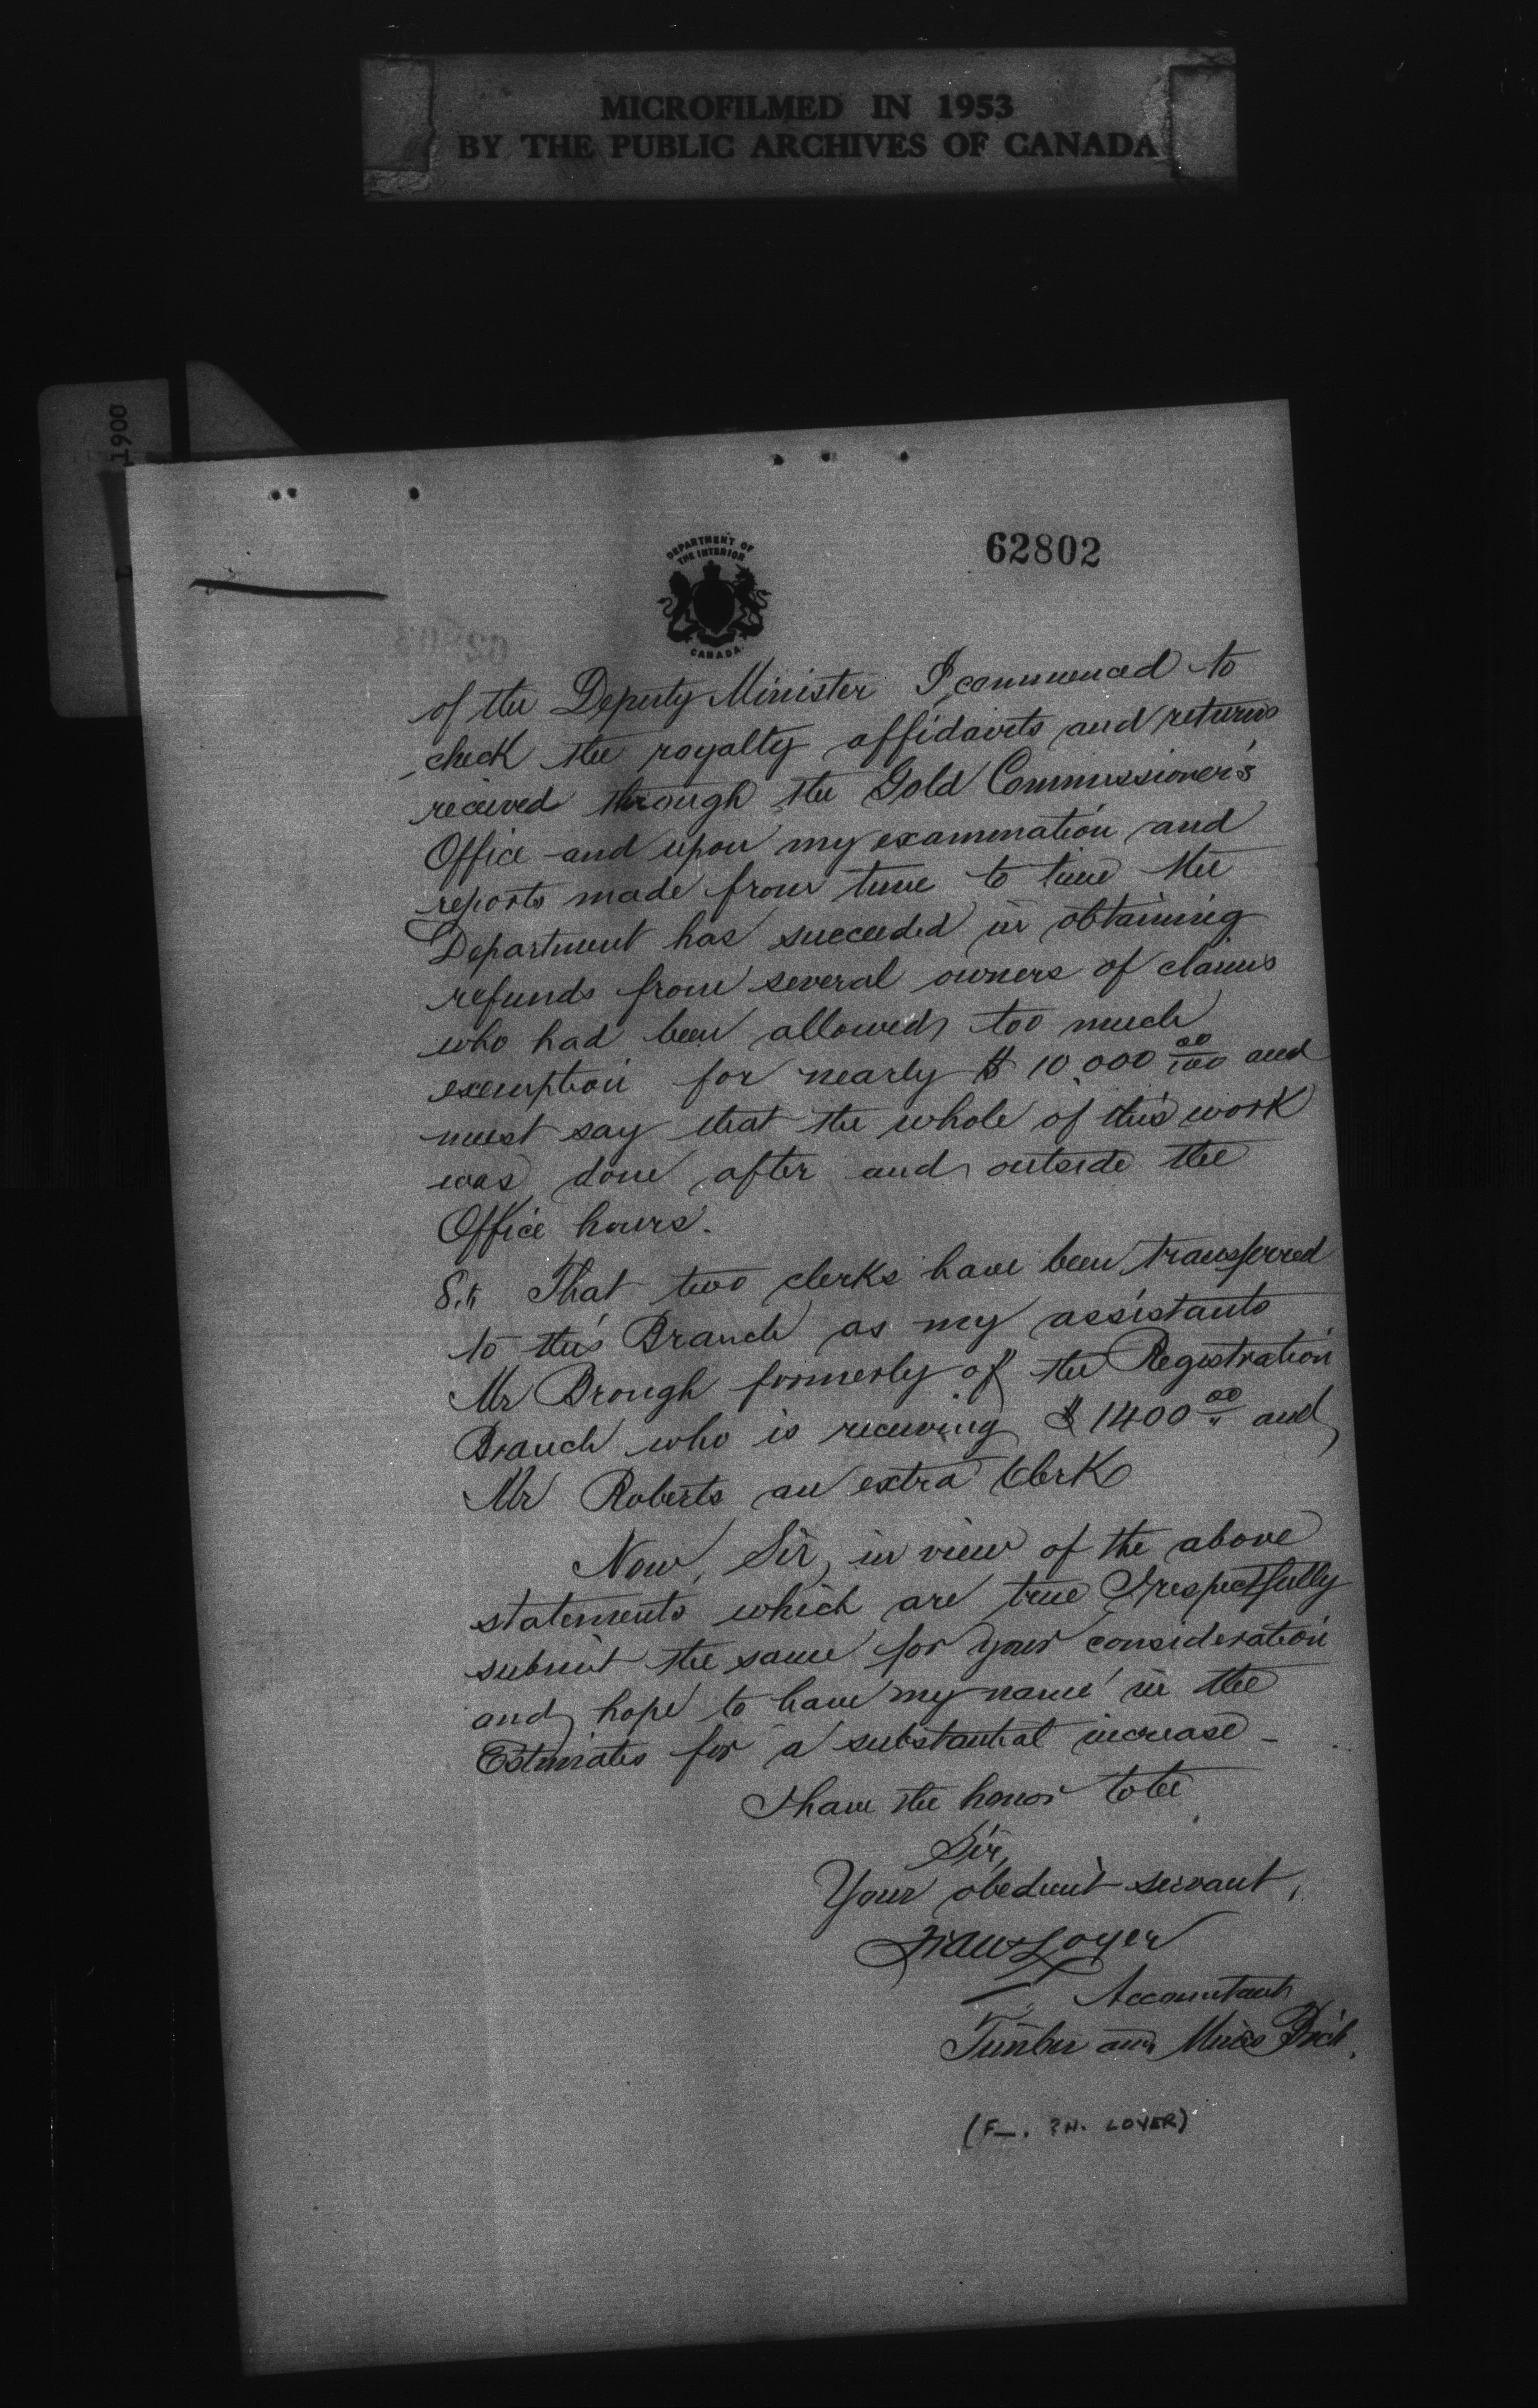 MICROFILMED IN 1953
BY THE PUBLIC ARCHIVES OF CANADA
1900
DEPARTMENT OF
THE INTERIOR
CANADA
62802
of the Deputy Minister I commenced to
check the royalty affidavits and returns
received through the Gold Commissioner's
Office and upon my examination and
reports made from time to time the
Department has succeeded in obtaining
refunds from several owners of claims
who had been allowed too much
exemption for nearly $10,000 00/100 and
must say that the whole of this work
was done after and outside the
Office hours.
8th That two clerks have been transferred
to this Branch as my assistants
Mr Brough formerly of the Registration
Branch who is receiving $1400 00/" and
Mr Roberts an extra Clerk
Now, Sir, in view of the above
statements which are true I respectfully
submit the same for your consideration
and hope to have my name in the
Estimates for a substantial increase -
I have the honor to be
Sir,
Your obedient servant,
Loyer
Accountant
Timber and Mines Brch.
(F_. ?H. LOYER)